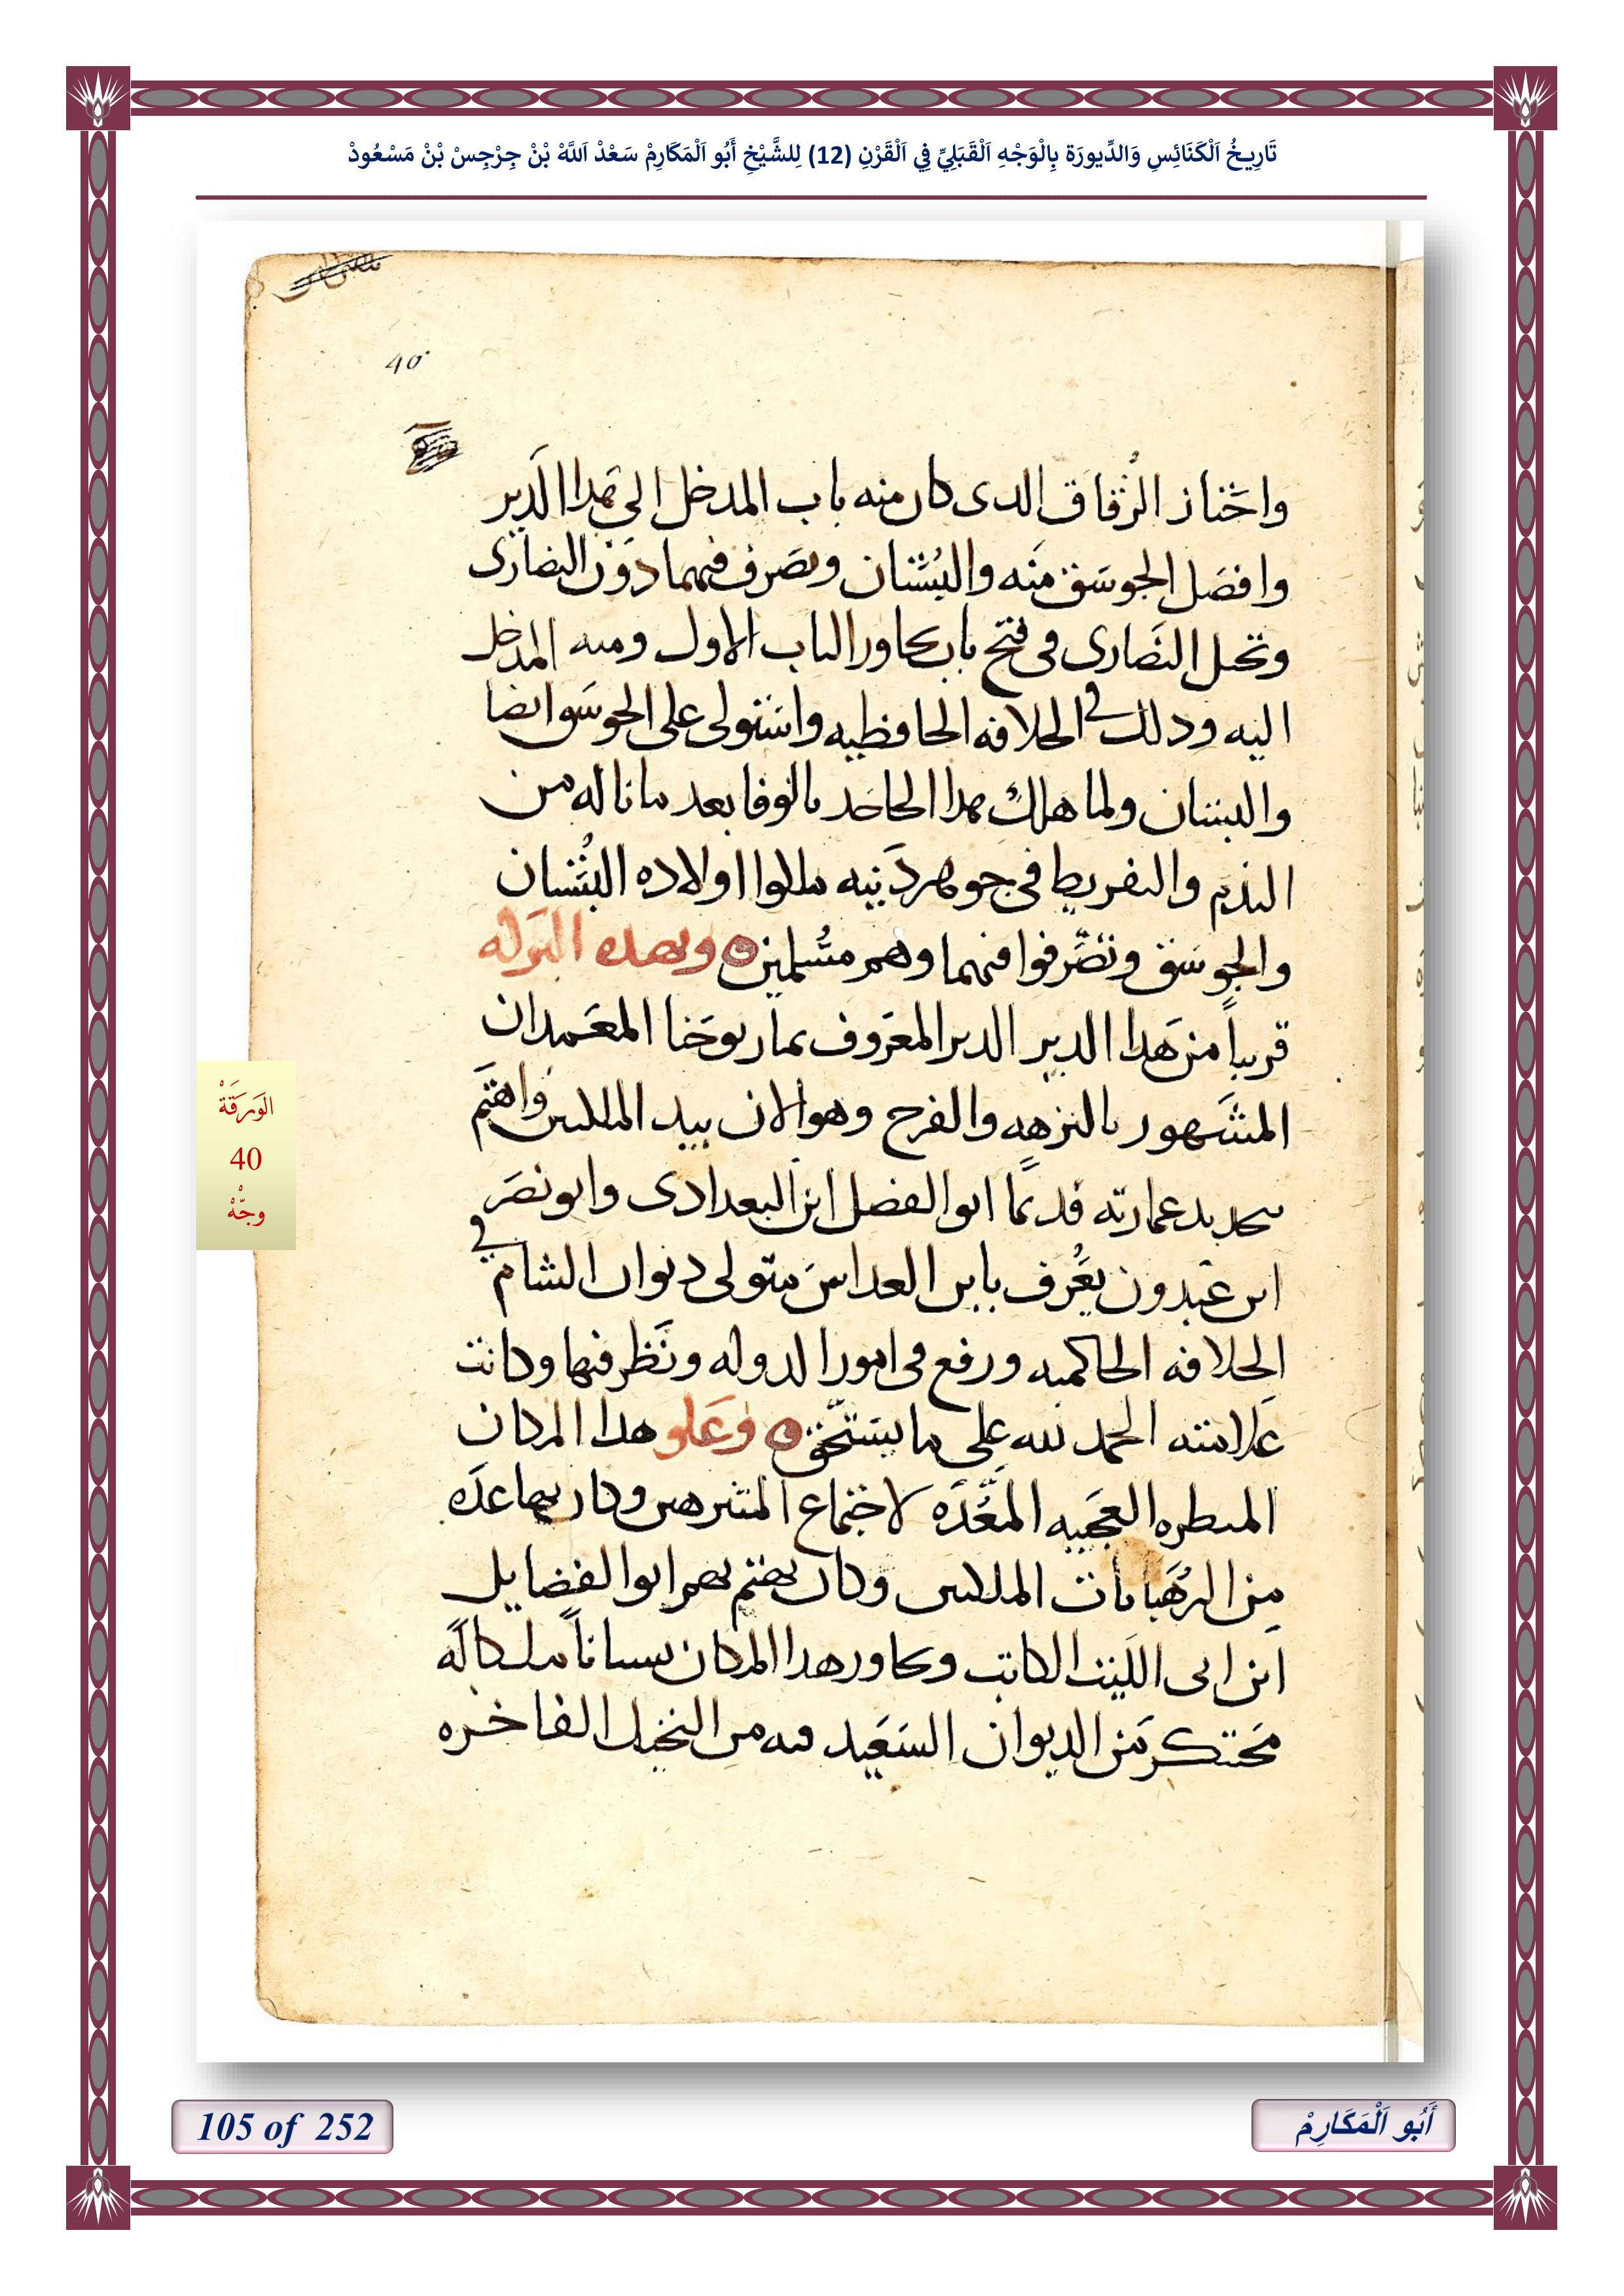 تَارِيخُ اَلْكَنَائِسِ وَالدِّيورَة بِالْوَجْهِ اَلْقَبَلِيِّ فِي اَلْقَرْنِ (12) لِلشَّيْخِ أَبُو اَلْمَكَارِمْ سَعْدْ اَللَّهْ بْنْ جِرْجِسْ بْنْ مَسْعُودْ
40
واحتاز الزقاق الدى كان منه باب المدخل الي هدا الدير
وافصل الجوسق منه والبستان وتصرف فيهما دون النصارى
وتحيل النصارى فى فتح باب يجاور الباب الاول ومنه المدخل
اليه ودلك في الخلافه الحافظيه واستولى على الجوسق ايضا
والبستان ولما هلك هدا الجاحد بالوفا بعد ما ناله من
الندم والتفريط فى جوهر دينه اولاده البستان
والجوسق وتصرفوا فيهما وهم مسلمين وبهده البركه
قريباً من هدا الدير الدير المعروف بمار يوحنا المعمدان
المشهور بالنزهه والفرح وهو الان بيد الملكيين واهتم
بتجديد عمارته قديمًا ابو الفضل ابن البغدادى وابو نصر
ابن عبدون يعرف بابن العداس متولى ديوان الشام في
الخلافه الحاكميه ورفع فى امور الدوله ونظر فيها وكانت
علامته الحمد لله على ما يستحق وعلو هدا المكان
المنظره العجيبه المعده لاجتماع المتنزهين وكان بها عده
من الرهبانات الملكيين وكان يهتم بهم ابو الفضايل
ابن ابى الليث الكاتب وبجاور هدا المكان بستاناً ملكا له
محتكر من الديوان السعيد فيه من النخيل الفاخره
الوَرَقَةْ
40
وجّهْ
105 of 252
أَبُو اَلْمَكَارِمْ